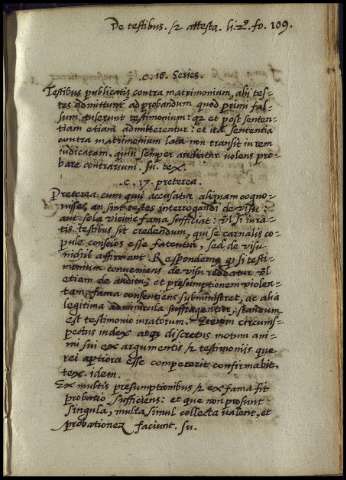 De testibus. et attesta. li: 2º. fo. 109.
.c. 18. Series.
Testibus publicatis contra matrimonium, alij tes-
tes admittunt ad probandum quod primi fal-
sum tulerunt testimonium: et post senten-
tiam etiam admitterentur: et ita sententia
contra matrimonium lata non transit in rem
judicatam, quin semper audiatur volens pro-
bare contrarium. su. tex.
.c. 17. preterea.
Preterea cum qui accusatur aliquam cogno-
visse, an sint testes interrogandi de visu:
aut sola vicinie fama sufficiat: Vel si jura-
tis testibus sit credendum, qui se carnalis co-
pule conscios esse fatentur, sed de visu
nichil affirment. Respondemus que si testi-
monium conveniens de visu reddatur Vel
etiam de auditu et presumptionem violen-
tam fama consentiens subministret, ac alia
legitima adminicula suffragentur, standum
est testimonio juratorum. circums-
pectus iudex atque discretus motum ani-
mi sui ex argumentis et testimonijs que
rei aptiora esse compererit confirmabit.
tex. idem.
Ex multis presumptionibus et ex fama fit
probatio sufficiens: et que non prosunt
singula, multa simul collecta valent, et
probationem faciunt. su.